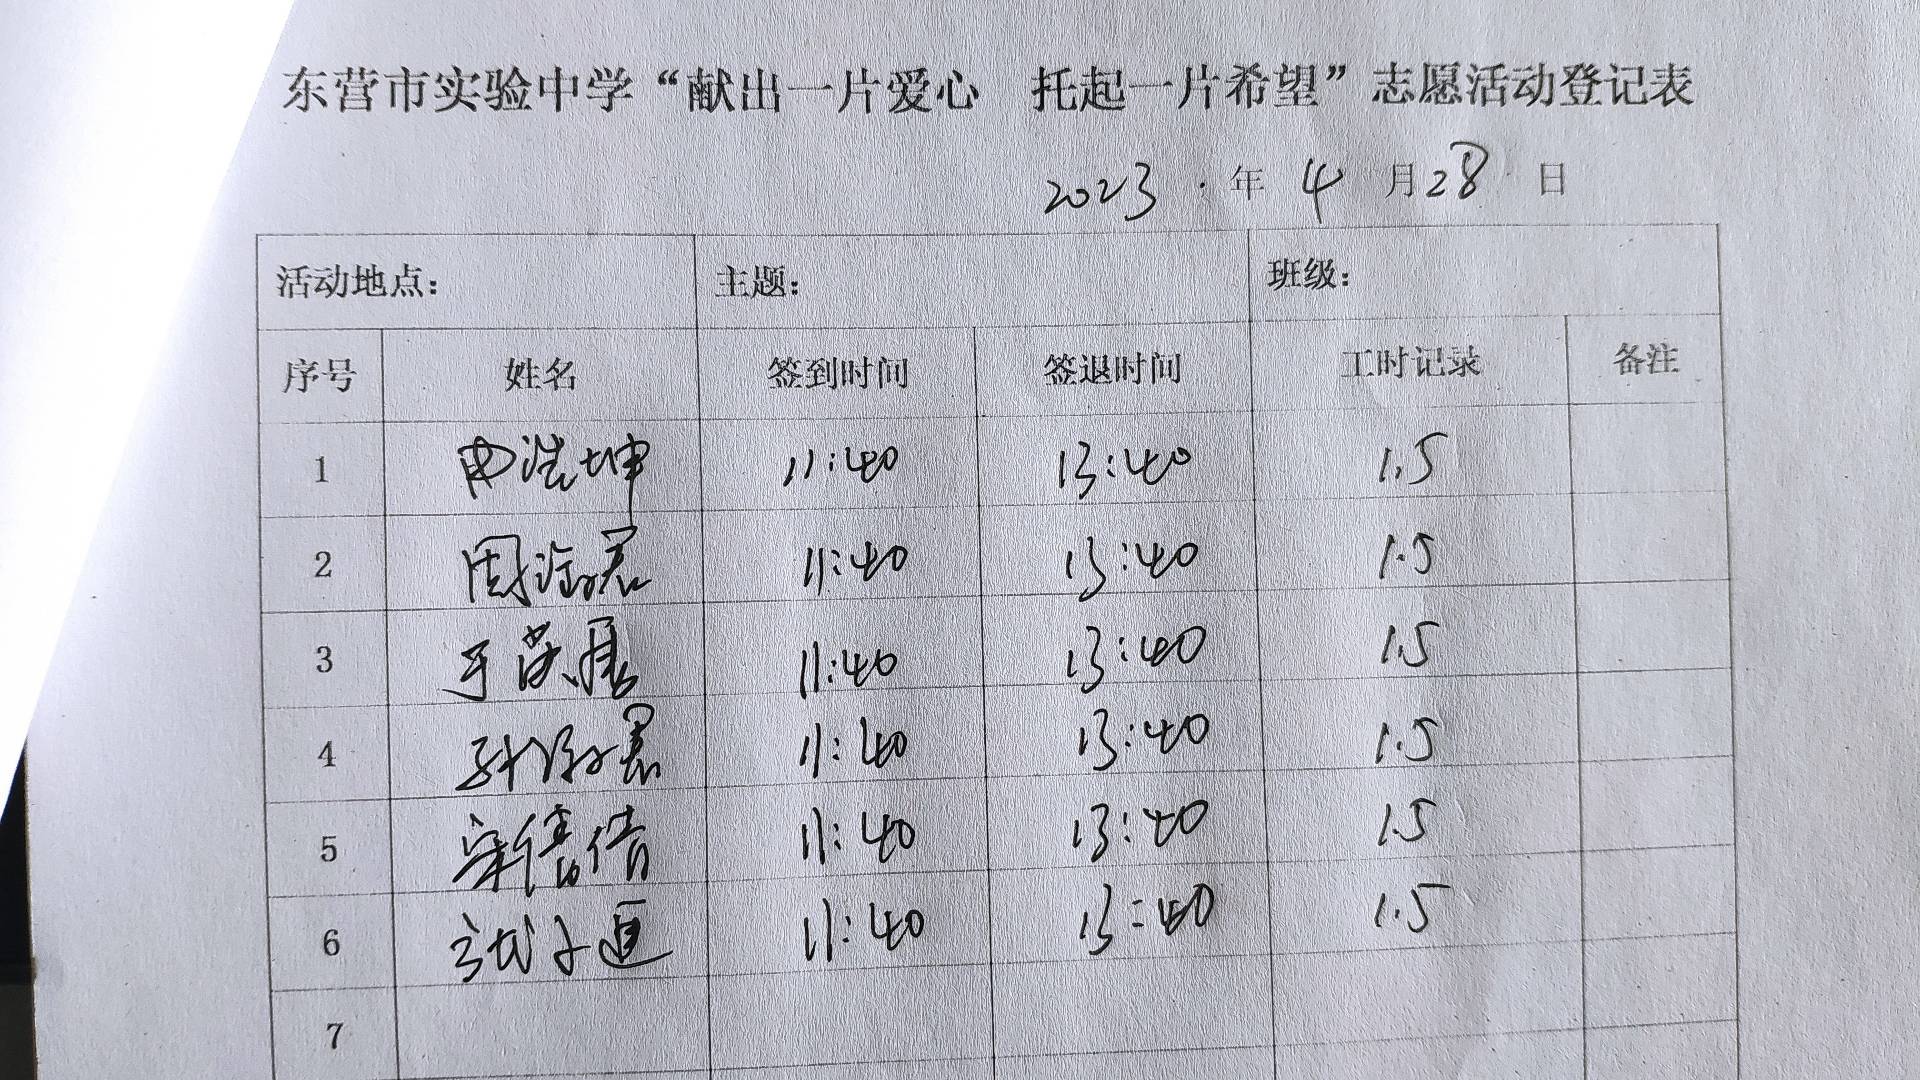 东营市实验中学“献出一片爱心 托起一片希望”志愿活动登记表
2023 年 4 月 28 日
活动地点： 主题： 班级：
序号 姓名 签到时间 签退时间 工时记录 备注
1 浩坤 11:40 13:40 1.5
2 周 11:40 13:40 1.5
3 于 11:40 13:40 1.5
4 孙 11:40 13:40 1.5
5 倩 11:40 13:40 1.5
6 11:40 13:40 1.5
7